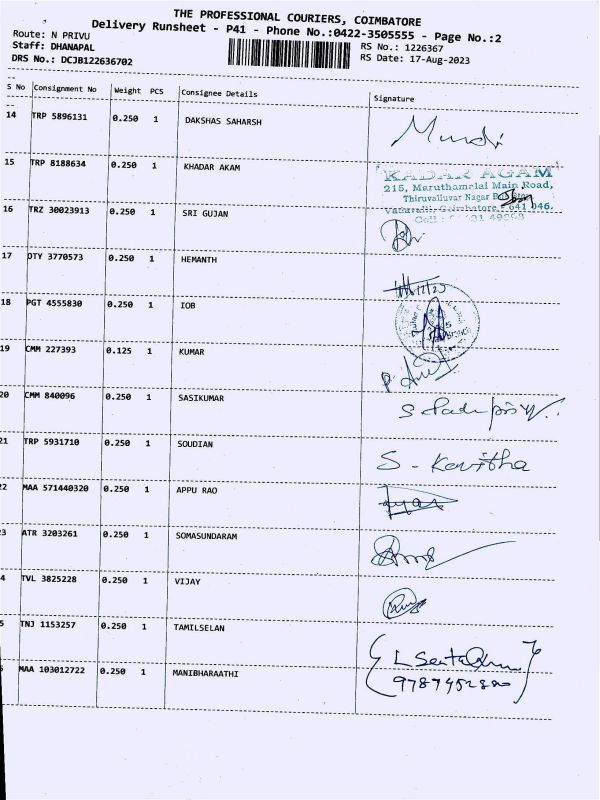 THE PROFESSIONAL COURIERS, COIMBATORE
Delivery Runsheet - P41 - Phone No.:0422-3505555 - Page No.:2
Route: N PRIVU
Staff: DHANAPAL
DRS No.: DCJB122636702
RS No.: 1226367
RS Date: 17-Aug-2023
S No Consignment No Weight PCS Consignee Details Signature
14 TRP 5896131 0.250 1 DAKSHAS SAHARSH
15 TRP 8188634 0.250 1 KHADAR AKAM
KADAR AGAM
215, Maruthamalai Main Road,
Thiruvalluvar Nagar
641 046.
16 TRZ 30023913 0.250 1 SRI GUJAN
17 DTY 3770573 0.250 1 HEMANTH
18 PGT 4555830 0.250 1 IOB
19 CMM 227393 0.125 1 KUMAR
20 CMM 840096 0.250 1 SASIKUMAR
21 TRP 5931710 0.250 1 SOUDIAN S - Kavitha
22 MAA 571440320 0.250 1 APPU RAO
3 ATR 3203261 0.250 1 SOMASUNDARAM
4 TVL 3825228 0.250 1 VIJAY
5 TNJ 1153257 0.250 1 TAMILSELAN
MAA 103012722 0.250 1 MANIBHARAATHI